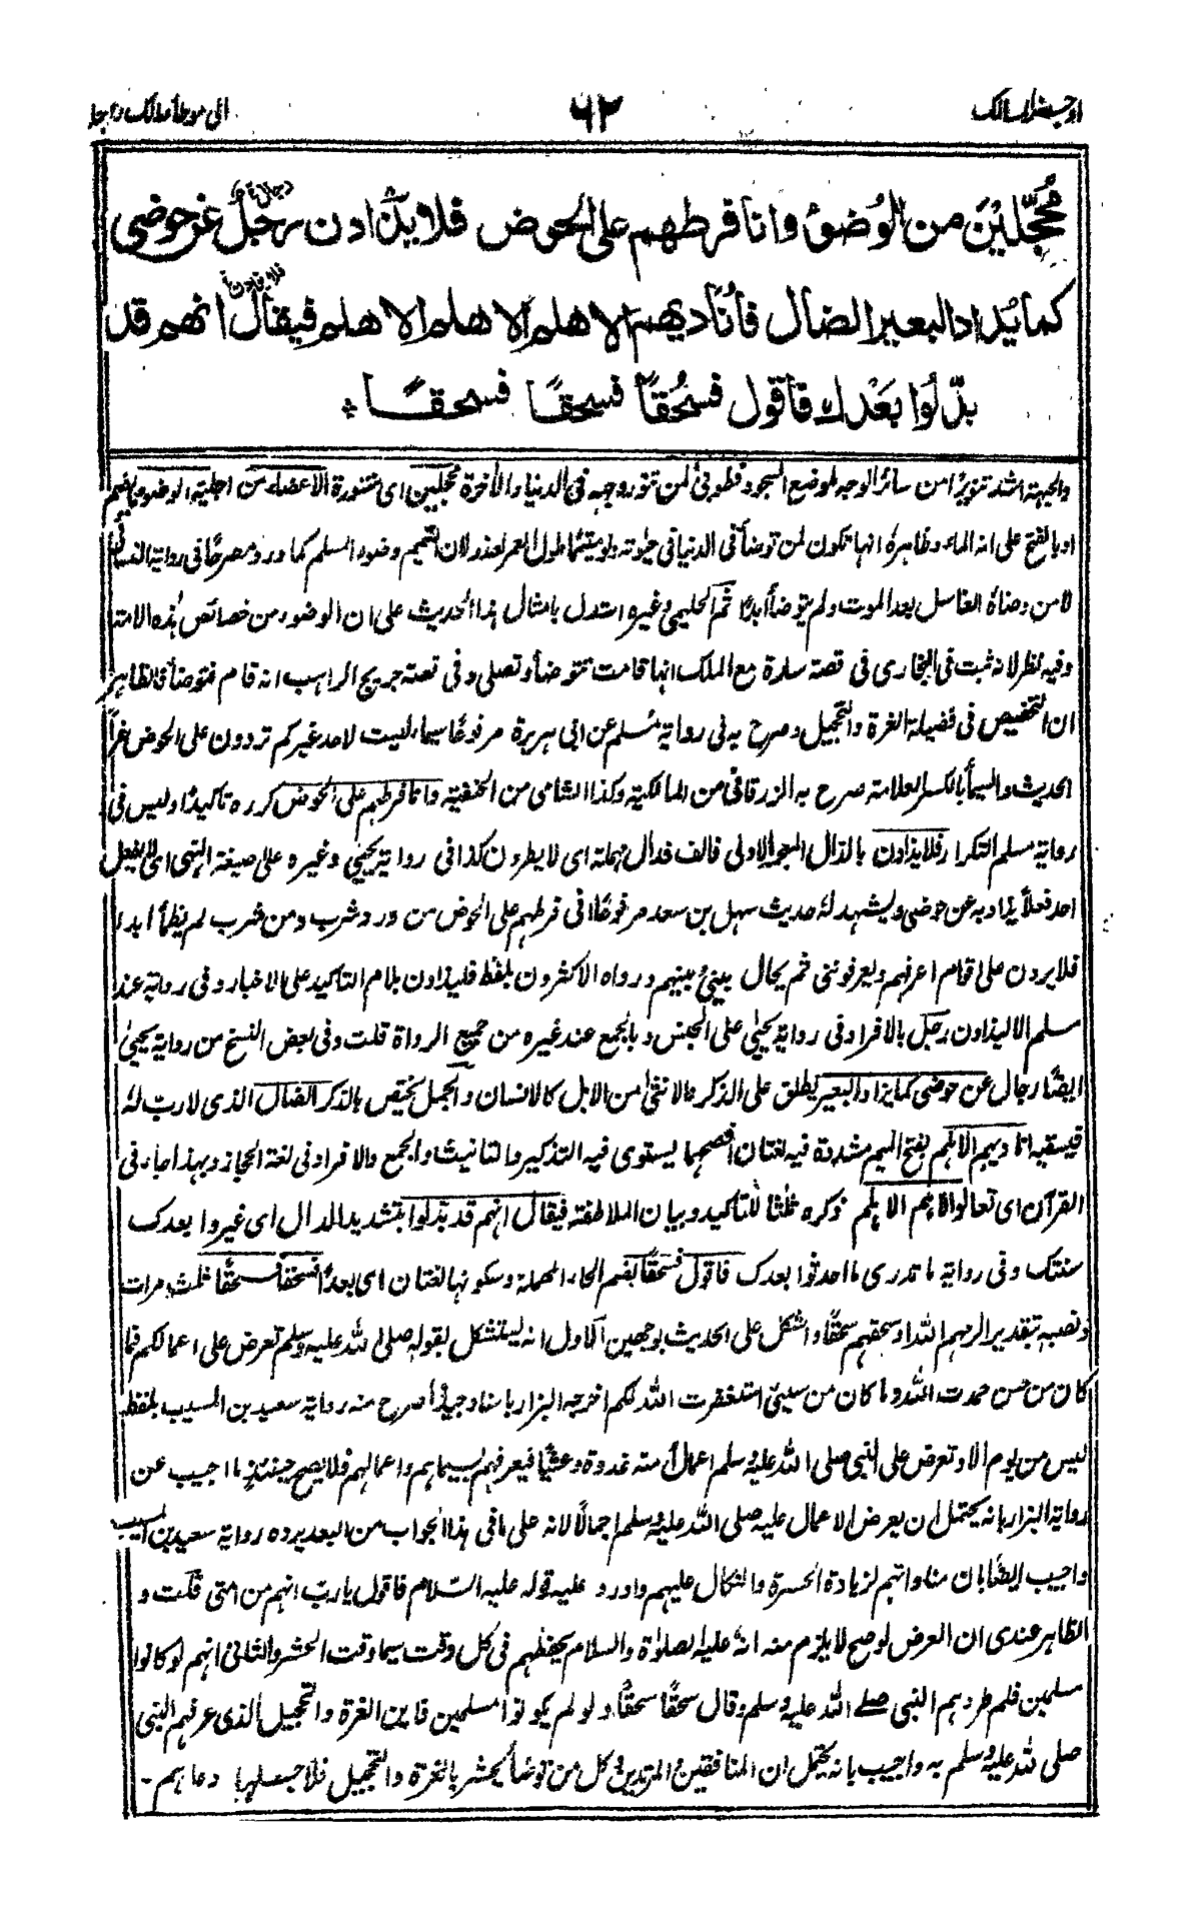 اوجز المسالك
٦٢
الى موطأ مالك
مُحَجَّلِيْنَ من الوُضوْءِ وانا فرطهم على الحوض فلا يذادن رجلٌ عن حوضى
كما يُذاد البعير الضال فأُنَاديهم الا هلم الا هلم الا هلم فيقال انهم قد
بدّلُوا بَعْدك فاقول فسُحْقًا فسحقًا فسحقًا
والجبهة اشد تنويرًا من سائر الوجه لموضع السجود فطوبى لمن تنور وجهه فى الدنيا والآخرة محجلين اى متنورة الاعضاء من اجلية الوضوء بالضم
او بالفتح على انه الماء وظاهره انها تكون لمن توضأ فى الدنيا فى حيوته ولو يتيمّا طول العمر لعذر لان التيمم وضوء المسلم كما ورد مصرحًا فى رواية النسائى
لا من وضأه الغاسل بعد الموت ولم يتوضأ ابدًا ثم الحليمى وغيره استدل بامثال هذا الحديث على ان الوضوء من خصائص هذه الامة
وفيه نظر لانه ثبت فى البخارى فى قصة سارة مع الملك انها قامت تتوضأ وتصلى وفى قصة جريج الراهب انه قام فتوضأ فالظاهر
ان التخصيص فى فضيلة الغرة والتحجيل وصرح به فى رواية مسلم عن ابى هريرة مرفوعًا سيماء ليست لاحد غيركم تردون على الحوض غرًا
الحديث والسيما بالكسر العلامة صرح به الزرقانى من المالكية وكذا الشامى من الحنفية وانا فرطهم على الحوض كرره تاكيدًا وليس فى
رواية مسلم التكرار فلا يذادن بالذال المعجمة الاولى فالف فدال مهملة اى لا يطردن كذا فى رواية يحيى وغيره على صيغة النهى اى لا يفعل
احد فعلا يذاد به عن حوضى ويشهد له حديث سهل بن سعد مرفوعًا انى فرطهم على الحوض من ورد شرب ومن شرب لم يظمأ ابدا
فلا يردن على اقوام اعرفهم ويعرفوننى ثم يحال بينى وبينهم ورواه الاكثرون بلفظ فليذادن بلام التاكيد على الاخبار وفى رواية عند
مسلم الا ليذادن رجل بالافراد فى رواية يحيى على الجنس وبالجمع عند غيره من جميع الرواة قلت وفى بعض النسخ من رواية يحيى
ايضًا رجال عن حوضى كما يذاد البعير يطلق على الذكر والانثى من الابل كالانسان والجمل يختص بالذكر الضال الذى لا رب له
فيسقيه اناديهم الا هلم بفتح الميم مشددة فيه لغتان افصحهما يستوى فيه التذكير والتانيث والجمع والافراد فى لغة الحجاز وبهذا جاء فى
القرآن اى تعالوا الا هلم الا هلم ذكره ثلثًا للتاكيد وبيان الملاطفة فيقال انهم قد بدّلوا بتشديد الدال اى غيروا بعدك
سنتك وفى رواية ما تدرى ما احدثوا بعدك فاقول فسحقًا بضم الحاء المهملة وسكونها لغتان اى بعدًا فسحقًا فسحقًا ثلث مرات
ونصبه بتقدير الزمهم الله او سحقهم سحقًا واشكل على الحديث بوجهين الاول انه يستشكل بقوله صلى الله عليه وسلم تعرض على اعمالكم فما
كان من حسن حمدت الله وما كان من سيئى استغفرت الله لكم اخرجه البزار باسناد جيد واصرح منه رواية سعيد بن المسيب بلفظ
ليس من يوم الا وتعرض على النبى صلى الله عليه وسلم اعمال امته غدوة وعشيًا فيعرفهم بسيماهم واعمالهم فلا يصح حينئذٍ ما اجيب عن
رواية البزار بانه يحتمل ان يعرض الاعمال عليه صلى الله عليه وسلم اجمالًا لانه على ما فى هذا الجواب من البعد يرده رواية سعيد بن المسيب
واجيب ايضًا بان مناداتهم لزيادة الحسرة والنكال عليهم واورد عليه قوله عليه السّلام فاقول يارب انهم من امتى قلت و
الظاهر عندى ان العرض لو صح لا يلزم منه انه عليه الصلوٰة والسلام يحفظهم فى كل وقت سيما وقت الحشر والثانى انهم لو كانوا
مسلمين فلم طردهم النبى صلى الله عليه وسلم وقال سحقًا سحقًا ولو لم يكونوا مسلمين فاين الغرة والتحجيل الذى عرفهم النبى
صلى الله عليه وسلم به واجيب بانه يحتمل ان المنافقين والمرتدين وكل من توضأ يحشر بالغرة والتحجيل فلاجلها دعاهم